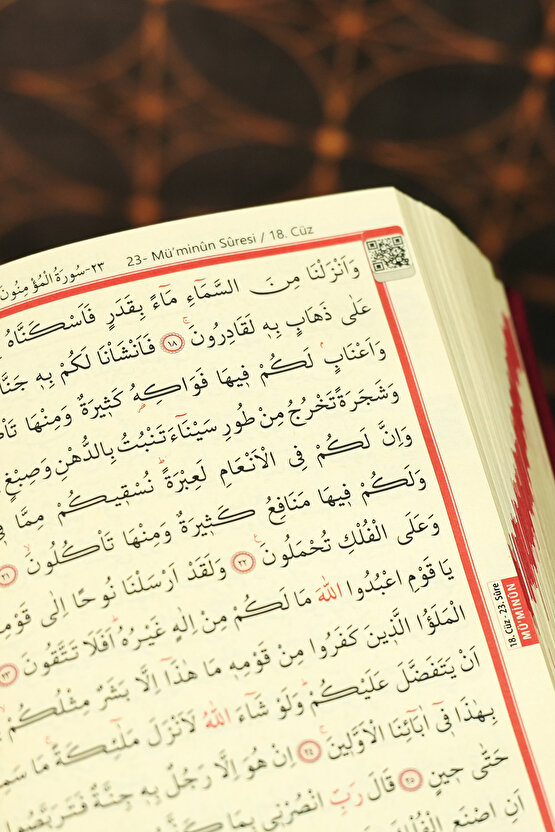 ٢٣-سُورَةُ الْمُؤْمِنُونَ 23- Mü'minûn Sûresi / 18. Cüz
وَاَنْزَلْنَا مِنَ السَّمَٓاءِ مَٓاءً بِقَدَرٍ فَاَسْكَنَّاهُ
عَلٰى ذَهَابٍ بِهٖ لَقَادِرُونَۚ ﴿١٨﴾ فَاَنْشَأْنَا لَكُمْ بِهٖ جَنَّا
وَاَعْنَابٍۢ لَكُمْ فٖيهَا فَوَاكِهُ كَثٖيرَةٌ وَمِنْهَا
وَشَجَرَةً تَخْرُجُ مِنْ طُورِ سَيْنَٓاءَ تَنْبُتُ بِالدُّهْنِ وَصِبْغٍ
وَاِنَّ لَكُمْ فِي الْاَنْعَامِ لَعِبْرَةًۜ نُسْقٖيكُمْ مِمَّا
وَلَكُمْ فٖيهَا مَنَافِعُ كَثٖيرَةٌ وَمِنْهَا تَأْكُلُونَۙ ﴿٢١﴾
وَعَلَى الْفُلْكِ تُحْمَلُونَ۟ ﴿٢٢﴾ وَلَقَدْ اَرْسَلْنَا نُوحًا اِلٰى قَوْمِهٖ
يَا قَوْمِ اعْبُدُوا اللّٰهَ مَا لَكُمْ مِنْ اِلٰهٍ غَيْرُهُۜ اَفَلَا تَتَّقُونَ ﴿٢٣﴾
الْمَلَؤُا الَّذٖينَ كَفَرُوا مِنْ قَوْمِهٖ مَا هٰذَٓا اِلَّا بَشَرٌ مِثْلُكُمْۙ
اَنْ يَتَفَضَّلَ عَلَيْكُمْۜ وَلَوْ شَٓاءَ اللّٰهُ لَاَنْزَلَ مَلٰٓئِكَةًۚ مَا
بِهٰذَا فٖٓي اٰبَٓائِنَا الْاَوَّلٖينَۚ ﴿٢٤﴾ اِنْ هُوَ اِلَّا رَجُلٌ بِهٖ جِنَّةٌ فَتَرَبَّصُوا
حَتّٰى حٖينٍ ﴿٢٥﴾ قَالَ رَبِّ انْصُرْنٖي بِمَا
اَنِ اصْنَعِ الْفُلْكَ
18. Cüz - 23. Sûre
MÜ'MİNÛN